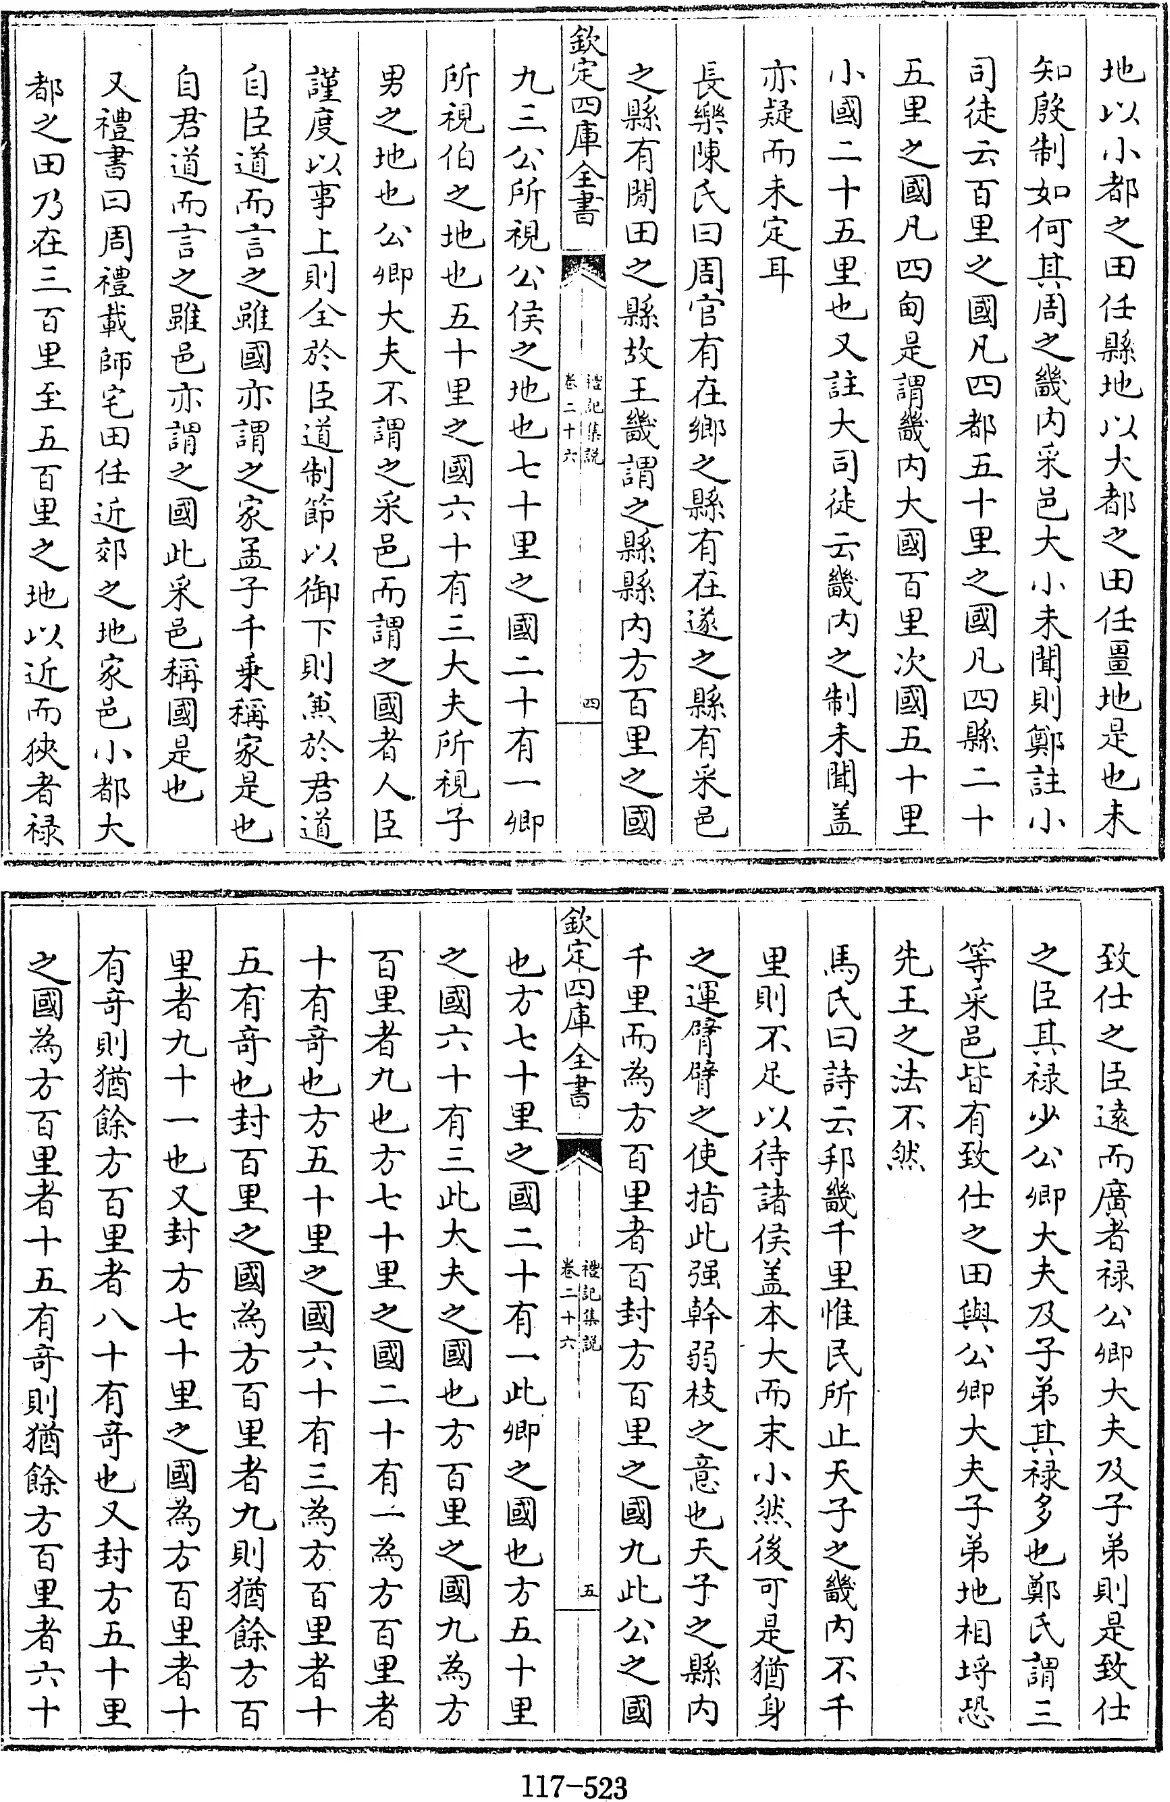 地以小都之田任縣地以大都之田任畺地是也未
知殷制如何其周之畿内采邑大小未聞則鄭註小
司徒云百里之國凡四都五十里之國凡四縣二十
五里之國凡四甸是謂畿内大國百里次國五十里
小國二十五里也又註大司徒云畿内之制未聞盖
亦疑而未定耳
長樂陳氏曰周官有在鄉之縣有在遂之縣有采邑
之縣有閒田之縣故王畿謂之縣縣内方百里之國
欽定四庫全書
禮記集説
卷二十六
四
九三公所視公侯之地也七十里之國二十有一卿
所視伯之地也五十里之國六十有三大夫所視子
男之地也公卿大夫不謂之采邑而謂之國者人臣
謹度以事上則全於臣道制節以御下則兼於君道
自臣道而言之雖國亦謂之家孟子千乗稱家是也
自君道而言之雖邑亦謂之國此采邑稱國是也
又禮書曰周禮載師宅田任近郊之地家邑小都大
都之田乃在三百里至五百里之地以近而狹者禄
致仕之臣逺而廣者禄公卿大夫及子弟則是致仕
之臣其禄少公卿大夫及子弟其禄多也鄭氏謂三
等采邑皆有致仕之田與公卿大夫子弟地相埒恐
先王之法不然
馬氏曰詩云邦畿千里惟民所止天子之畿内不千
里則不足以待諸侯盖本大而末小然後可是猶身
之運臂臂之使指此强幹弱枝之意也天子之縣内
千里而為方百里者百封方百里之國九此公之國
欽定四庫全書
禮記集説
卷二十六
五
也方七十里之國二十有一此卿之國也方五十里
之國六十有三此大夫之國也方百里之國九為方
百里者九也方七十里之國二十有一為方百里者
十有奇也方五十里之國六十有三為方百里者十
五有奇也封百里之國為方百里者九則猶餘方百
里者九十一也又封方七十里之國為方百里者十
有奇則猶餘方百里者八十有奇也又封方五十里
之國為方百里者十五有奇則猶餘方百里者六十
117-523